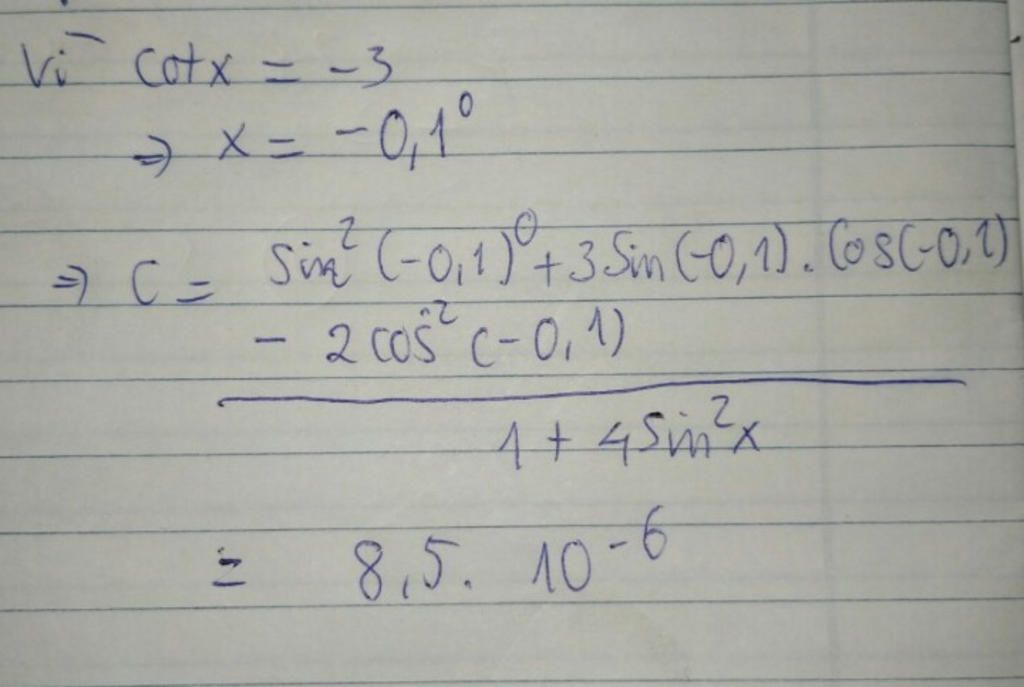 Vì cotx = -3
⇒ x = -0,1⁰
⇒ C = Sin² (-0,1)⁰ + 3 Sin (-0,1). Cos(-0,1)
- 2 cos² (-0,1)
1 + 4 Sin²x
= 8,5. 10⁻⁶